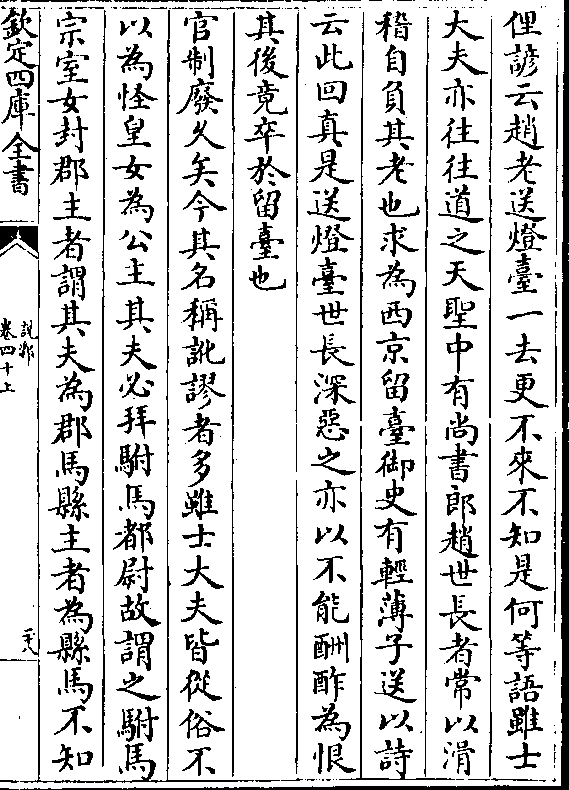 俚諺云趙老送燈臺一去更不來不知是何等語雖士
大夫亦往往道之天聖中有尚書郎趙世長者常以滑
稽自負其老也求為西京留臺御史有輕薄子送以詩
云此回真是送燈臺世長深惡之亦以不能酬酢為恨
其後竟卒於留臺也
官制廢久矣今其名稱訛謬者多雖士大夫皆從俗不
以為怪皇女為公主其夫必拜駙馬都尉故謂之駙馬
宗室女封郡主者謂其夫為郡馬縣主者為縣馬不知
欽定四庫全書
說郛
卷四十上